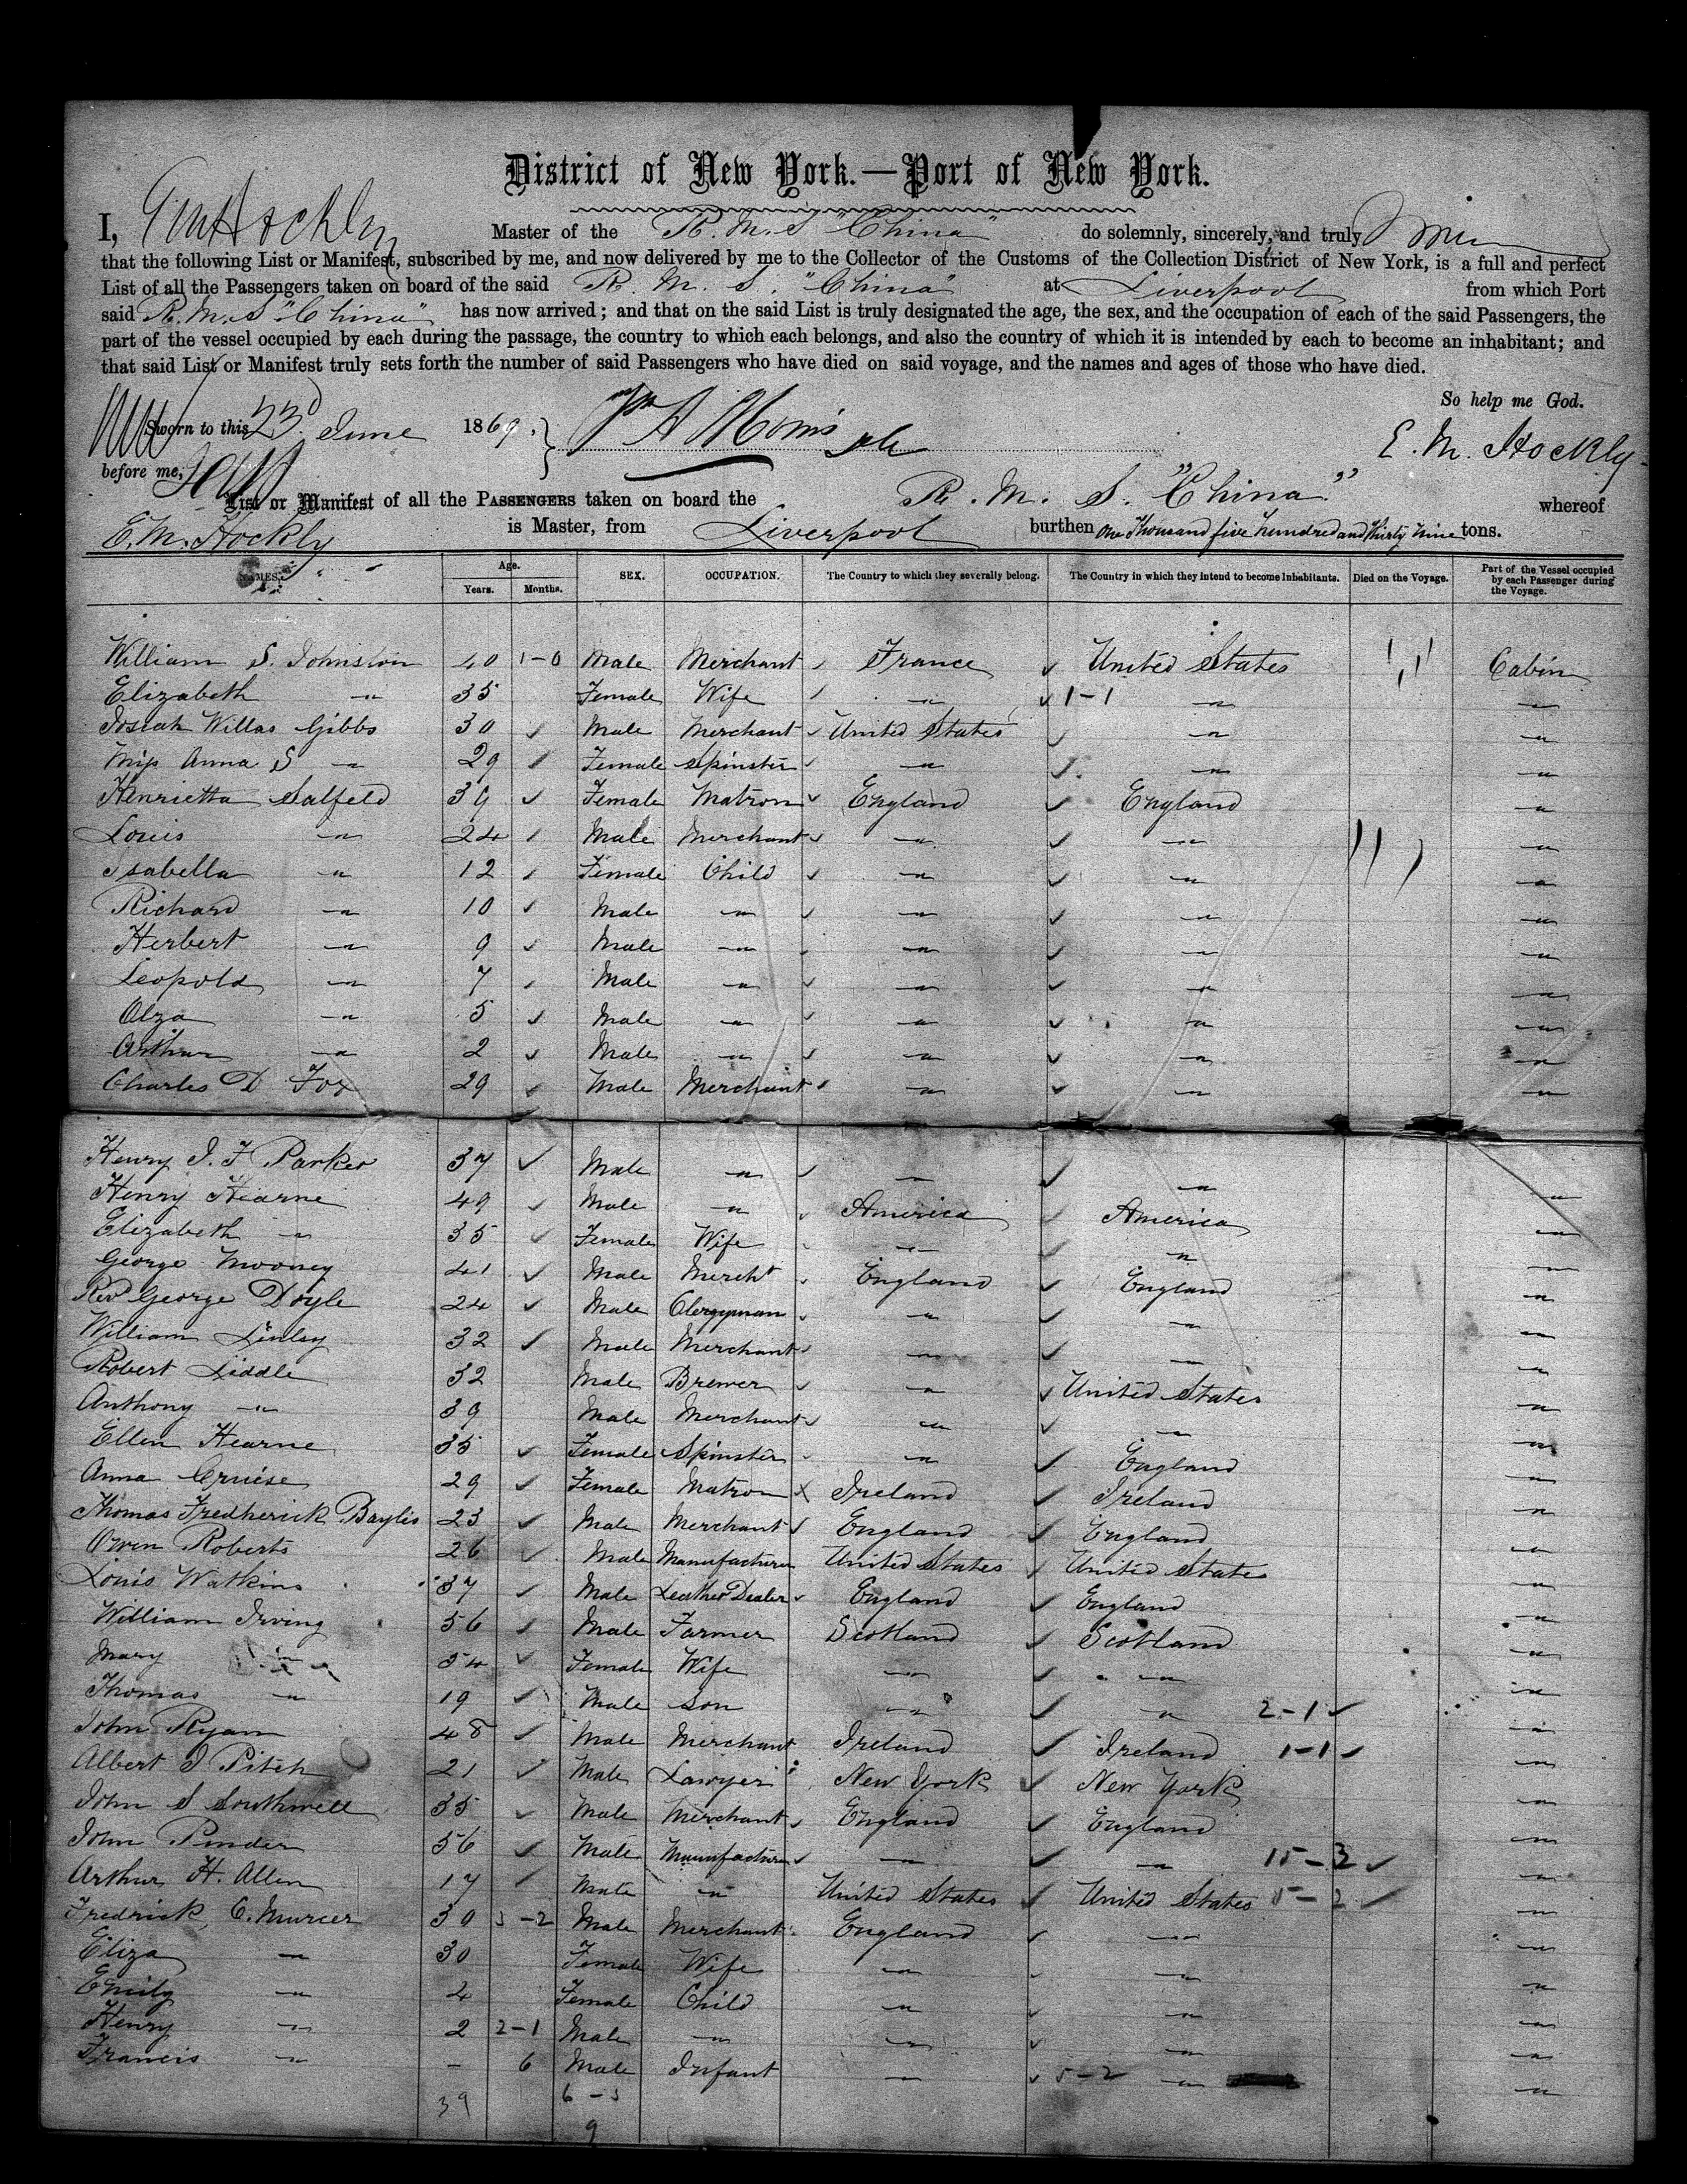 District of New York.—Port of New York.
I, Master of the R. M. S "China" do solemnly, sincerely, and truly
that the following List or Manifest, subscribed by me, and now delivered by me to the Collector of the Customs of the Collection District of New York, is a full and perfect
List of all the Passengers taken on board of the said R. M. S. "China" at Liverpool from which Port
said R. M. S "China" has now arrived; and that on the said List is truly designated the age, the sex, and the occupation of each of the said Passengers, the
part of the vessel occupied by each during the passage, the country to which each belongs, and also the country of which it is intended by each to become an inhabitant; and
that said List or Manifest truly sets forth the number of said Passengers who have died on said voyage, and the names and ages of those who have died.
So help me God.
Sworn to this 23d June 1869.
E. M. Hockly
before me,
List or Manifest of all the PASSENGERS taken on board the R. M. S. "China" whereof
E. M. Hockly is Master, from Liverpool burthen One Thousand five hundred and thirty nine tons.
NAMES. Age. Years. Months. SEX. OCCUPATION. The Country to which they severally belong. The Country in which they intend to become Inhabitants. Died on the Voyage. Part of the Vessel occupied by each Passenger during the Voyage.
William S. Johnston 40 1-0 Male Merchant France United States Cabin
Elizabeth " 35 Female Wife " 1-1 " "
Josiah Willas Gibbs 30 Male Merchant United States " "
Miss Anna S " 29 Female Spinster " " "
Henrietta Salfeld 39 Female Matron England England "
Louis " 24 Male Merchant " " "
Isabella " 12 Female Child " " "
Richard " 10 Male " " " "
Herbert " 9 Male " " " "
Leopold " 7 Male " " " "
Olga " 5 Male " " " "
Arthur " 2 Male " " " "
Charles D Fox 29 Male Merchant " " "
Henry J. F Parker 37 Male " " " "
Henry Hearne 49 Male " America America "
Elizabeth " 35 Female Wife " " "
George Mooney 41 Male Mercht England England "
Revd George Doyle 24 Male Clergyman " " "
William Linley 32 Male Merchant " " "
Robert Liddle 32 Male Brewer " United States "
Anthony " 39 Male Merchant " " "
Ellen Hearne 35 Female Spinster " England "
Anna Cruise 29 Female Matron Ireland Ireland "
Thomas Fredherick Baylis 23 Male Merchant England England "
Owen Roberts 26 Male Manufacturer United States United States "
Louis Watkins 37 Male Leather Dealer England England "
William Irving 56 Male Farmer Scotland Scotland "
Mary " 54 Female Wife " " "
Thomas " 19 Male Son " " 2-1 "
John Ryan 48 Male Merchant Ireland Ireland 1-1 "
Albert J Pitch 21 Male Lawyer New York New York "
John S Southwell 35 Male Merchant England England "
John Pinder 56 Male Manufacturer " " 15-3 "
Arthur H. Allen 17 Male " United States United States 5-2 "
Fredrick C. Murcer 30 3-2 Male Merchant England " "
Eliza " 30 Female Wife " " "
Emily " 4 Female Child " " "
Henry " 2 2-1 Male " " " "
Francis " - 6 Male Infant " 5-2 " "
39 6-3
9